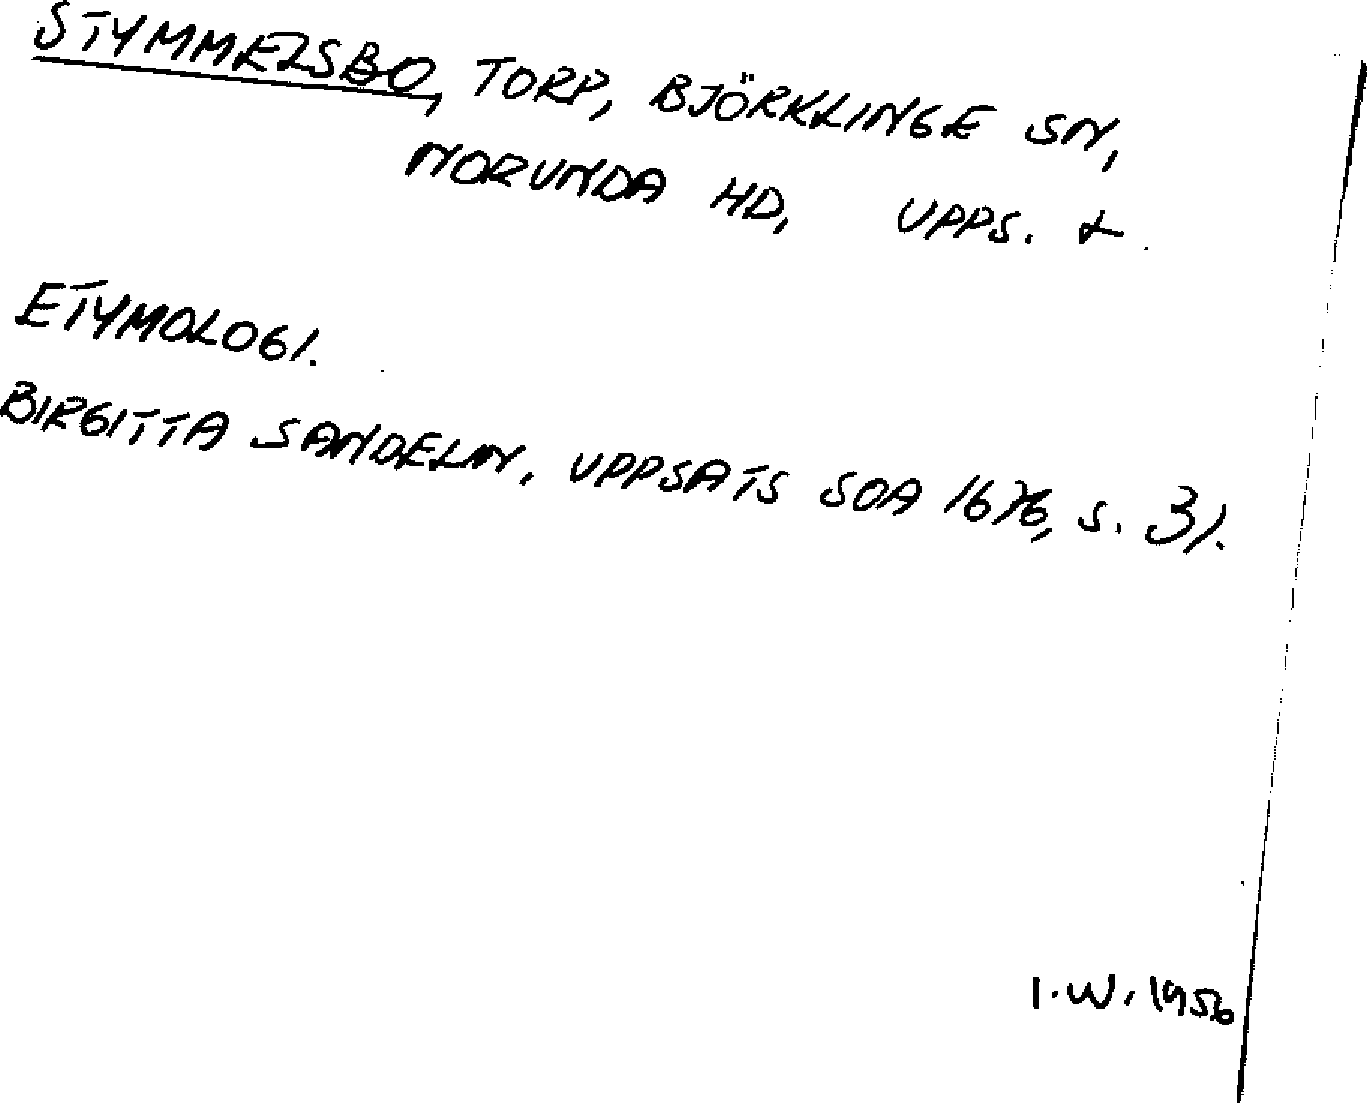 STYMMELSBO, TORP, BJÖRKLINGE SN,
NORUNDA HD, UPPS. L.
ETYMOLOGI.
BIRGITTA SANDELIN, UPPSATS SOA 1676, S. 31.
I.W. 1956